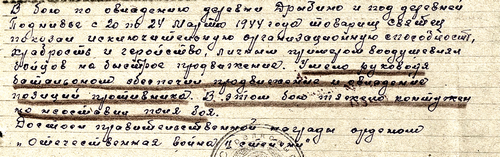 В бою по овладению деревни Дрыбино и под деревней
Подниевье с 20 по 24 марта 1944 года товарищ Святец
показал исключительную организационную способность,
храбрость и геройство, личным примером воодушевлял
бойцов на быстрое продвижение. Умело руководя
батальоном обеспечил продвижение и овладение
позиций противника. В этом бою тяжело контужен
но не оставил поля боя.
Достоин правительственной награды орденом
„Отечественная война II степени"